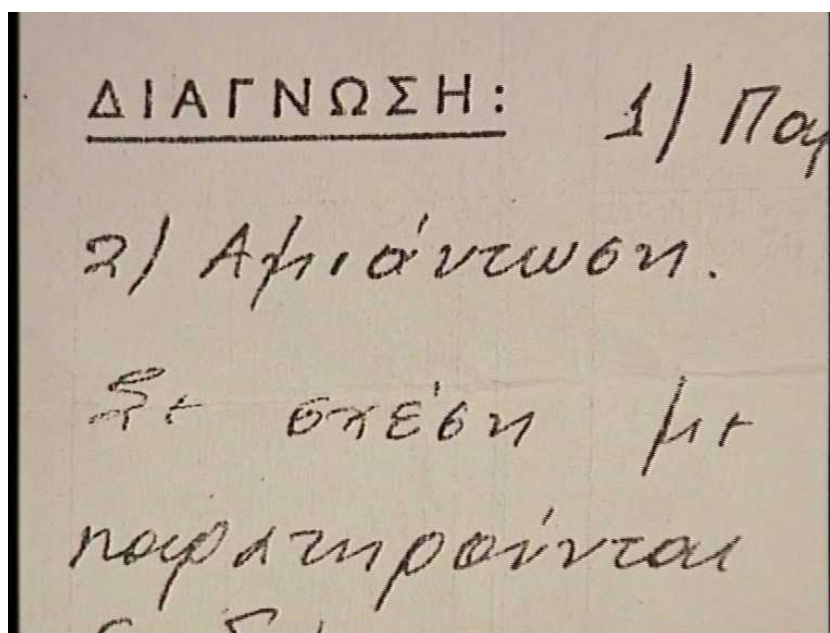 ΔΙΑΓΝΩΣΗ: 1) Πα
2) Αμιάντωση.
Σε σχέση με
παρατηρούνται